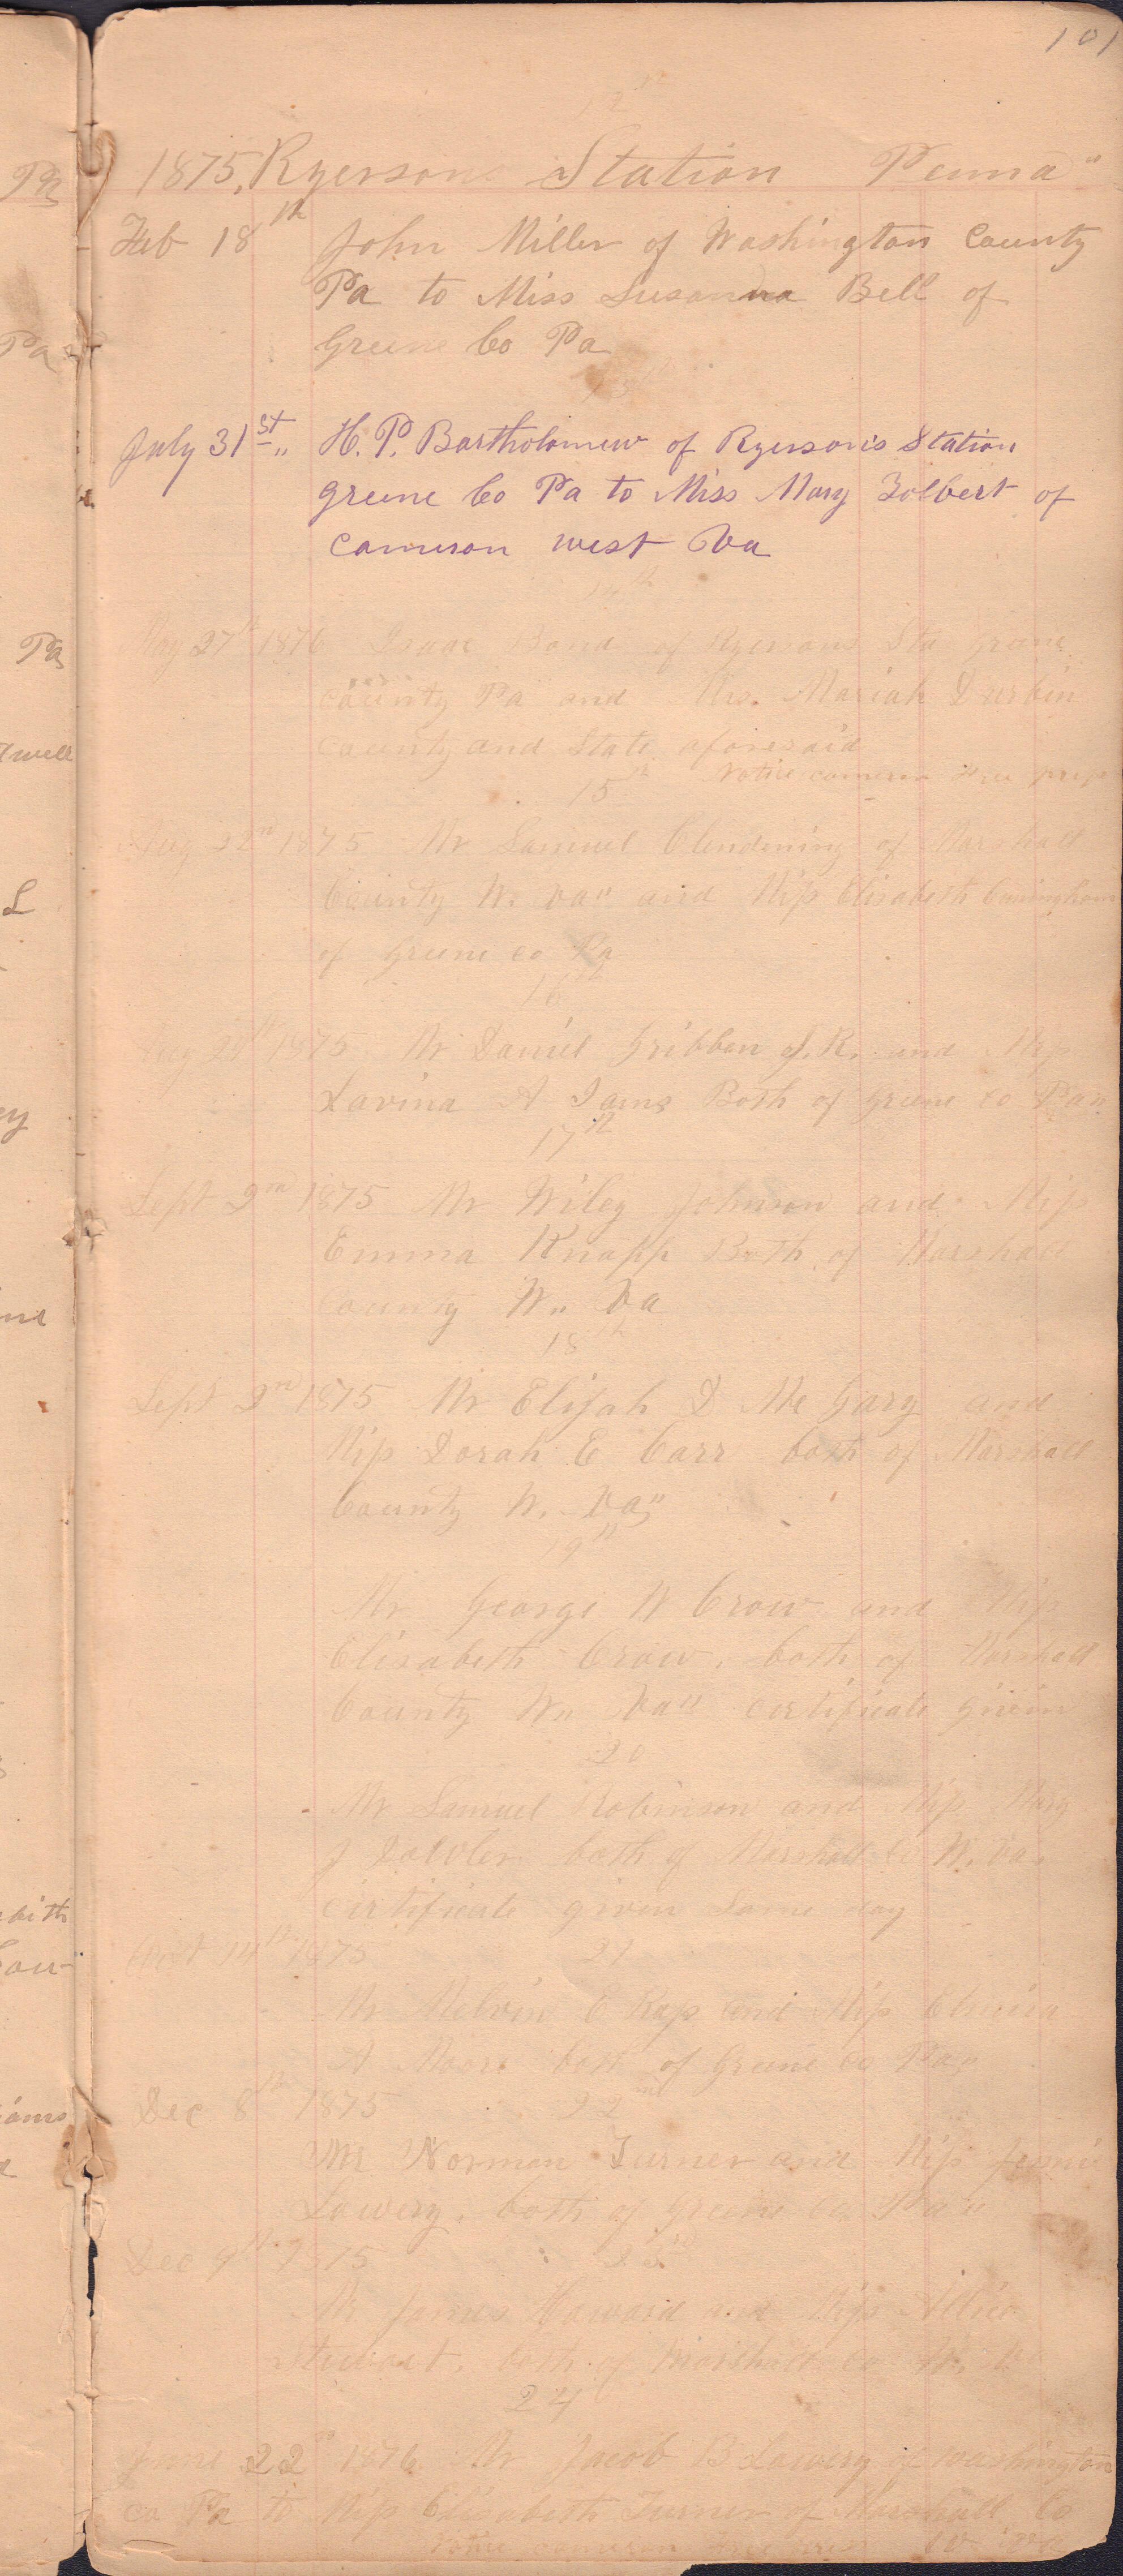 101
12th
1875, Ryerson Station Penna"
Feb 18th John Miller of Washington County
Pa to Miss Susanna Bell of
Greene Co Pa
13th
July 31st " H. P. Bartholomew of Ryerson's Station
greene Co Pa to Miss Mary Tolbert of
Cameron west Va
14th
May 27th 1876 Isaac Bond of Ryersons Sta greene
county Pa and Mrs. Mariah Durbin
county and State aforesaid
15th Notice cameron
Aug 22nd 1875 Mr Samuel Clendening of Marshall
County W. Va" and Miss Elisabeth Cuningham
of Greene co Pa
16th
Aug 1875 Mr Daniel Gribben J. R. and Miss
Lavina A Iams Both of Greene co Pa"
17th
Sept 2nd 1875 Mr Wiley Johnson and Miss
Emma Knapp Both of Marshall
County W" Va
18th
Sept 2nd 1875 Mr Elijah D Mc Gary and
Miss Dorah E Carr both of Marshall
County W. Va"
19th
Mr George W Crow and Miss
Elisabeth Crow, both of Marshall
County W" Va" certificate given
20
Mr Samuel Robinson and Miss Mary
J both of Marshall Co W. Va.
certificate given same day
Oct 14th 1875 21
Mr Melvin E Ross and Miss Elmira
A Moore both of Greene co Pa"
Dec 8th 1875 22nd
Mr Norman Turner and Miss Jennie
Lowery, both of Greene co. Pa"
Dec 9th 1875 23rd
Mr James Howard and Miss
Stewart, both of Marshall Co W. Va
24
June 22 1876 Mr Jacob B Lowery of Washington
co Pa to Miss Elisabeth Turner of Marshall Co
Notice cameron W Va